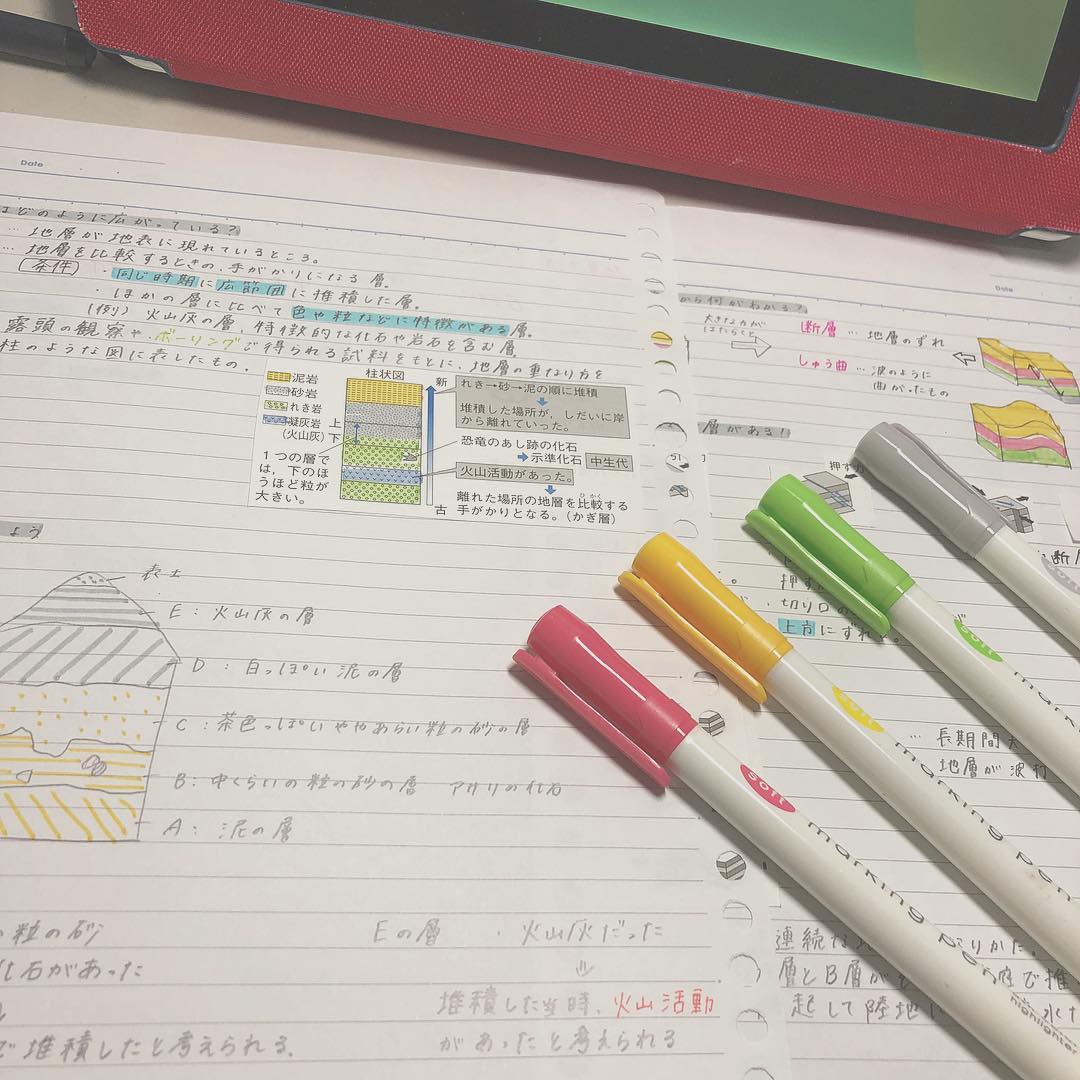 Date
はどのように広がっている？
… 地層が地表に現れているところ。
… 地層を比較するときの、手がかりになる層。
(条件) ・同じ時期に広範囲に推積した層。
・ほかの層に比べて色や粒などに特徴がある層。
(例) 火山灰の層、特徴的な化石や岩石を含む層
露頭の観察や、ボーリングで得られる試料をもとに、地層の重なり方を
柱のような図に表したもの。
泥岩
砂岩
れき岩
凝灰岩
(火山灰)
1つの層で
は，下のほ
うほど粒が
大きい。
柱状図
上
下
新
古
れき→砂→泥の順に堆積
堆積した場所が，しだいに岸
から離れていった。
恐竜のあし跡の化石
示準化石 中生代
火山活動があった。
離れた場所の地層を比較する
ひかく
手がかりとなる。(かぎ層)
よう
表土
E：火山灰の層
D：白っぽい泥の層
C：茶色っぽいやや あらい粒の砂の層
B：中くらいの粒の砂の層 アサリの化石
A：泥の層
粒の砂
化石があった
で堆積したと考えられる.
Eの層 ・火山灰だった
堆積した当時、火山活動
があったと考えられる
Date
から何がわかる？
大きな力が
はたらくと
断層 … 地層のずれ
しゅう曲 … 波のように
曲がったもの
層がある！
押す力
押す
切り口の
上方にずれ
… 長期間大
地層が波打
連続
層とB層が
起して陸地に
soft marking pen
highlighter
soft marking pen
soft mark
soft